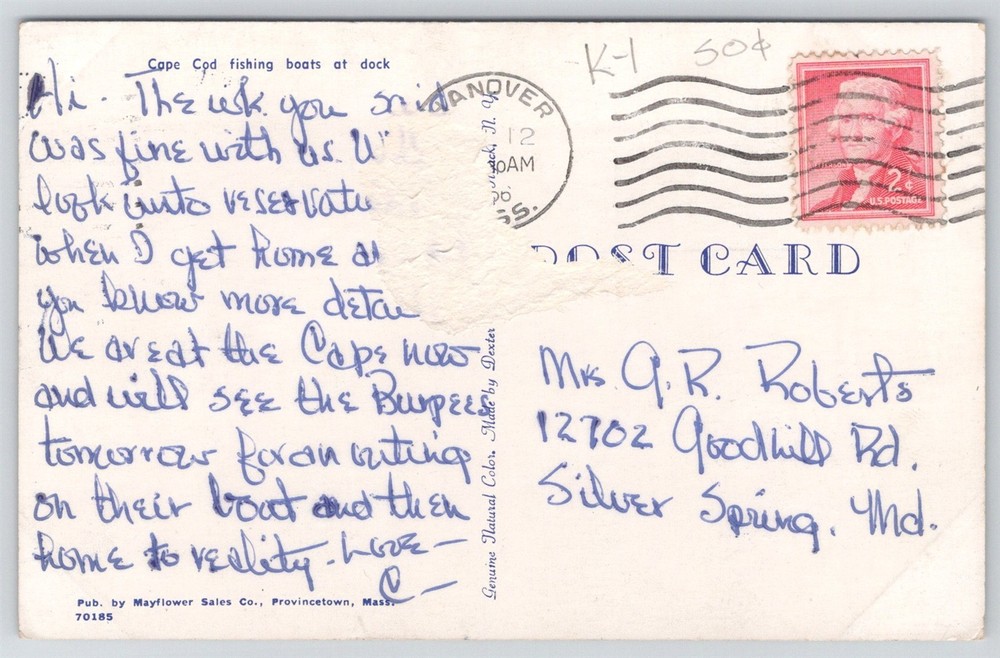 K-1 50¢
Cape Cod fishing boats at dock
Hi - The wk you said
was fine with us.
look into
when I get home
you know more
We are at the Cape now
and will see the Burpees
tomorrow for an outing
on their boat and then
home to reality. Love —
C —
Pub. by Mayflower Sales Co., Provincetown, Mass.
70185
Genuine Natural Color. Made by Dexter
N. Y.
ANOVER
12
AM
SS.
2¢
U.S. POSTAGE
POST CARD
Mrs G. R. Roberts
12702 Goodhill Rd.
Silver Spring, Md.